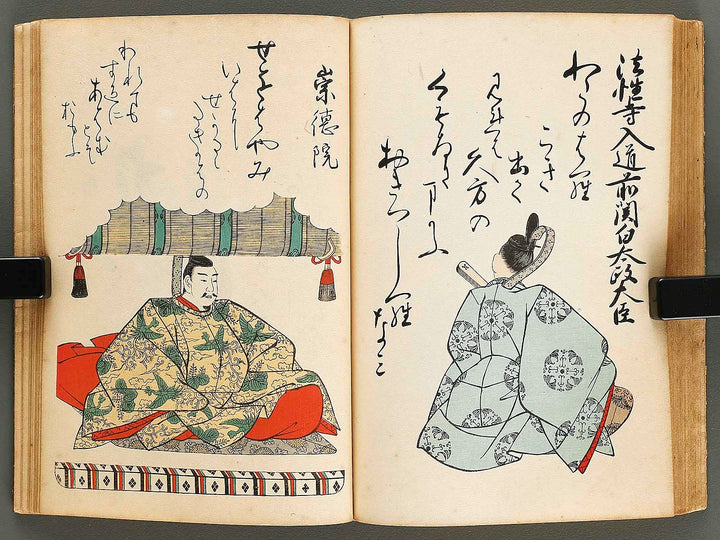 法性寺入道前関白太政大臣
わたのはら
こき
出て
見れは久方の
くもゐにまかふ
おきつしらなみ
崇徳院
せをはやみ
いはに
せかるゝ
たきかはの
われても
すゑに
あはむ
とそ
おもふ